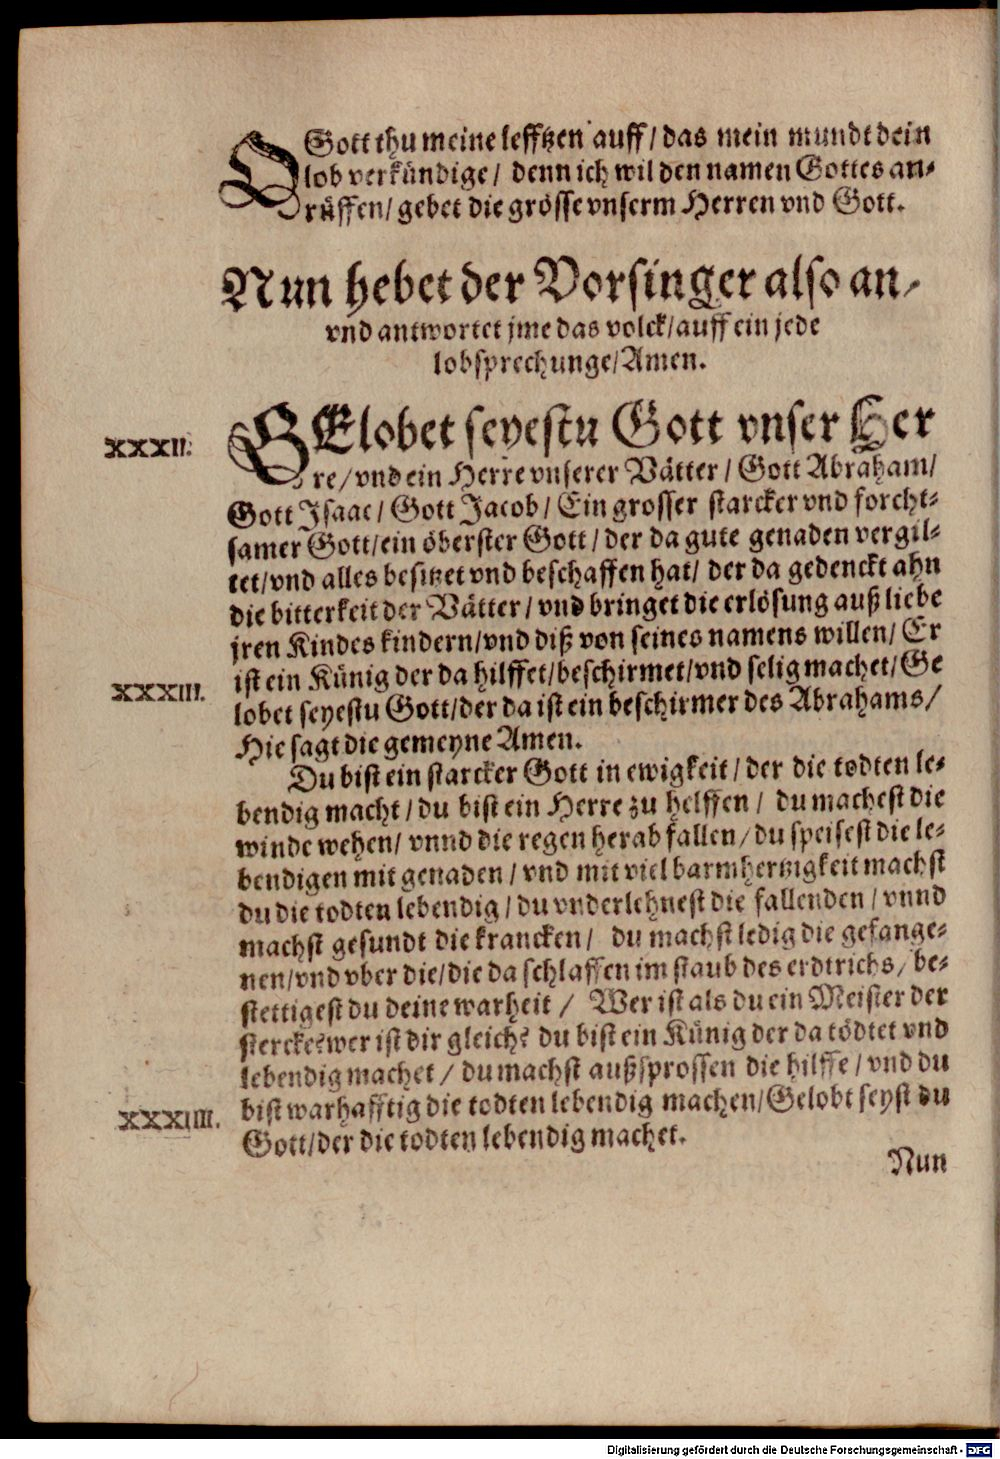 O Gott thu meine lefftzen auff/ das mein mundt dein
lob verkündige/ denn ich wil den namen Gottes an-
rüffen/ gebet die grösse vnserm Herren vnd Gott.
Nun hebet der Vorsinger also an/
vnd antwortet jme das volck/ auff ein jede
lobsprechunge/ Amen.
XXXII.
GElobet seyestu Gott vnser Her
re/ vnd ein Herre vnserer Vätter/ Gott Abraham/
Gott Isaac/ Gott Jacob/ Ein grosser starcker vnd forcht-
samer Gott/ ein öberster Gott/ der da gute genaden vergil-
tet/ vnd alles besitzet vnd beschaffen hat/ der da gedenckt ahn
die bitterkeit der Vätter/ vnd bringet die erlösung auß liebe
jren Kindes kindern/ vnd diß von seines namens willen/ Er
ist ein Künig der da hilffet/ beschirmet/ vnd selig machet/ Ge
XXXIII.
lobet seyestu Gott/ der da ist ein beschirmer des Abrahams/
Hie sagt die gemeyne Amen.
Du bist ein starcker Gott in ewigkeit/ der die todten le-
bendig macht/ du bist ein Herre zu helffen/ du machest die
winde wehen/ vnnd die regen herab fallen/ du speisest die le-
bendigen mit genaden/ vnd mit viel barmhertzigkeit machst
du die todten lebendig/ du vnderlehnest die fallenden/ vnnd
machst gesundt die krancken/ du machst ledig die gefange-
nen/ vnd vber die/ die da schlaffen im staub des erdtrichs/ be-
stettigest du deine warheit/ Wer ist als du ein Meister der
stercke? wer ist dir gleich? du bist ein Künig der da tödtet vnd
lebendig machet/ du machst außsprossen die hilffe/ vnd du
XXXIIII.
bist warhafftig die todten lebendig machen/ Gelobt seyst du
Gott/ der die todten lebendig machet.
Nun
Digitalisierung gefördert durch die Deutsche Forschungsgemeinschaft - DFG